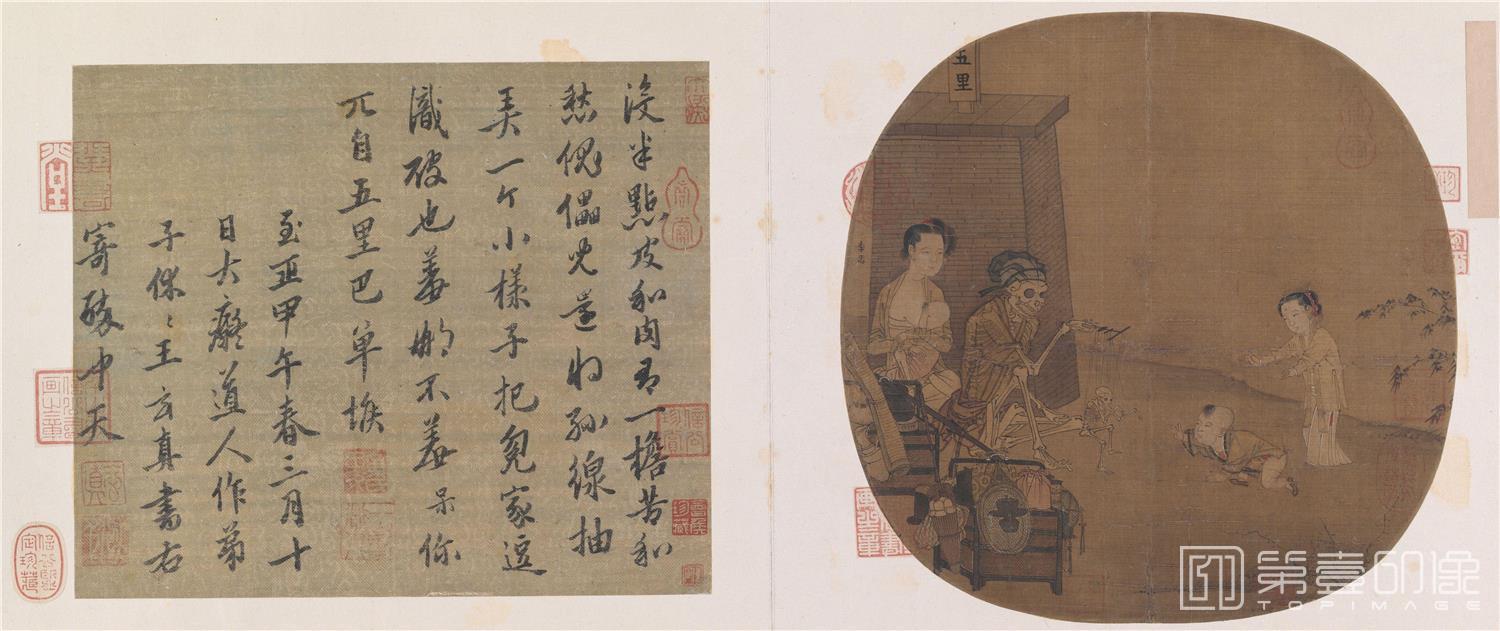 沒半點皮和肉有一檐苦和
愁傀儡兒還將絲線抽
弄一个小樣子把冤家逗
識破也羞那不羞呆你
兀自五里巴單堠
至正甲午春三月十
日大癡道人作弟
子休々王玄真書右
寄醉中天
五里
李嵩
第壹印像
TOPIMAGE